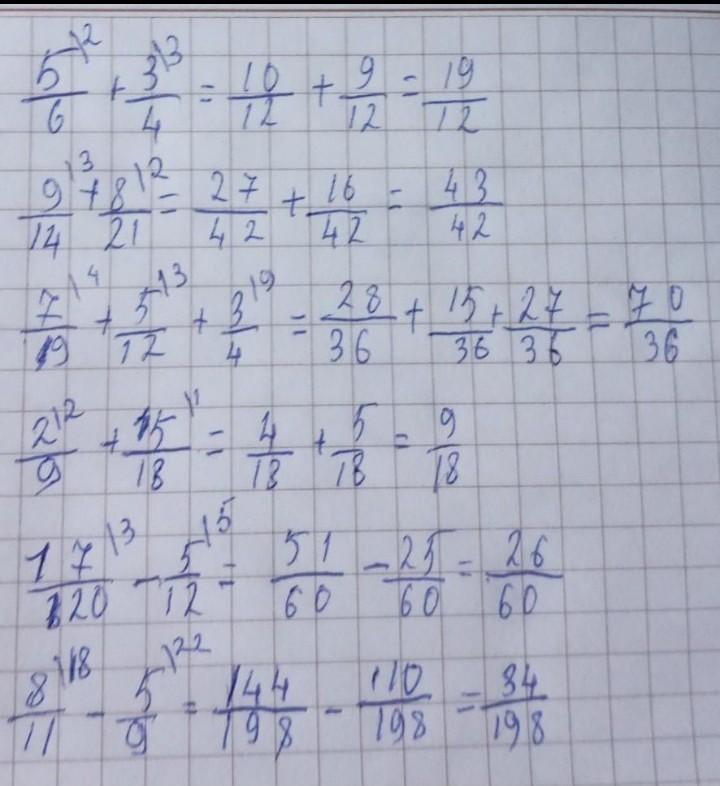 5\2/6 + 3\3/4 = 10/12 + 9/12 = 19/12
9\3/14 + 8\2/21 = 27/42 + 16/42 = 43/42
7\4/9 + 5\3/12 + 3\9/4 = 28/36 + 15/36 + 27/36 = 70/36
2\2/9 + 5\1/18 = 4/18 + 5/18 = 9/18
17\3/20 - 5\5/12 = 51/60 - 25/60 = 26/60
8\18/11 - 5\22/9 = 144/198 - 110/198 = 34/198